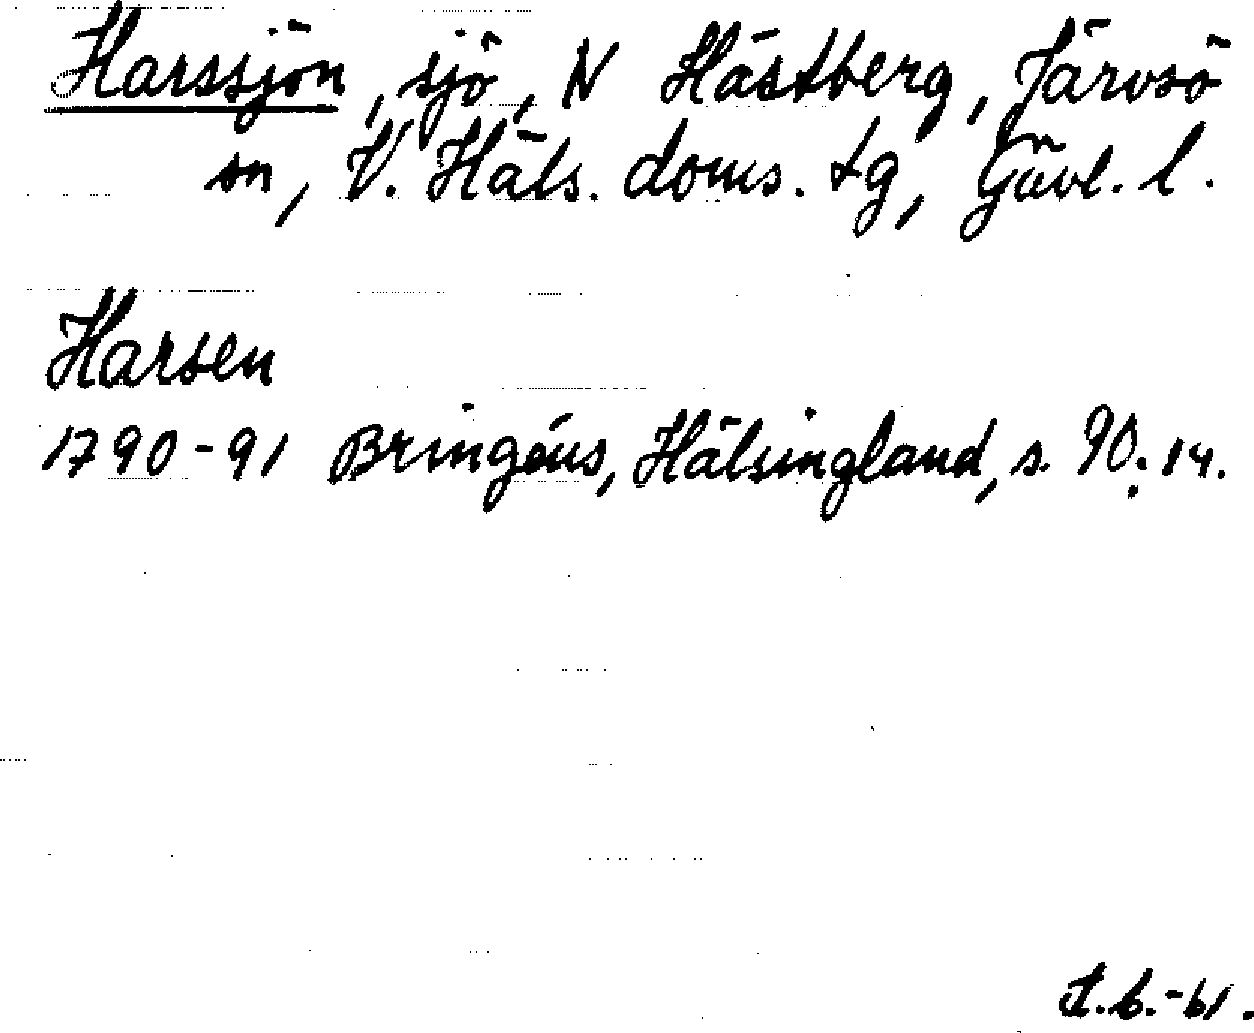 Harssjön, sjö, N Hästberg, Järvsö
sn, V. Häls. doms. tg, Gävl. l.
Harsen
1790-91 Bringéus, Hälsingland, s. 90. 14.